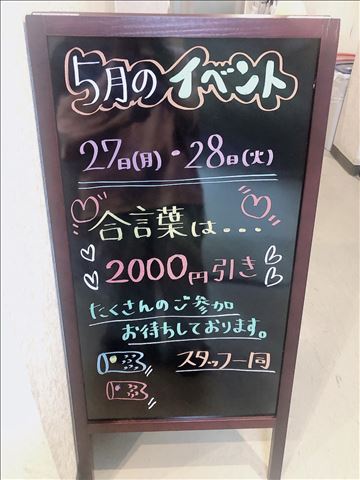 5月のイベント
27日(月)・28日(火)
合言葉は...
2000円引き
たくさんのご参加
お待ちしております。
スタッフ一同